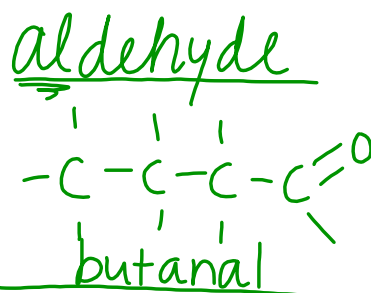 aldehyde
- C - C - C - C = O
butanal